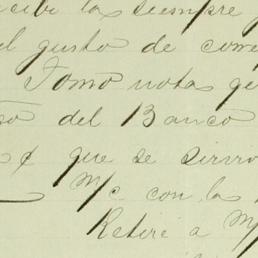 la siempre
el gusto de
Tomo nota
del Banco
que se sirvo
M/c con la
Retiré a M/